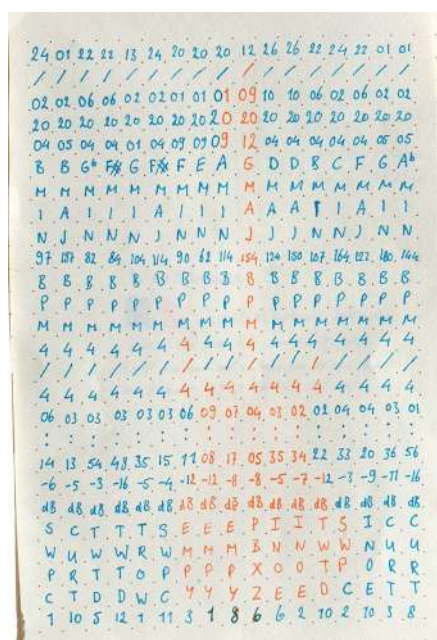 24 01 22 22 13 24 20 20 20 12 26 26 22 24 22 01 01
/ / / / / / / / / / / / / / / / /
02 02 06 06 02 02 01 01 01 09 10 10 06 02 06 02 02
20 20 20 20 20 20 20 20 20 20 20 20 20 20 20 20 20
04 05 04 04 01 04 09 09 09 12 04 04 04 04 04 05 05
B B Gb F G F F E A G D D B C F G Ab
M M M M M M M M M M M M M M M M M
I A I I I A I I I A A A I I A I I
N J N N N J N N N J J J N N J N N
97 82 84 104 114 90 62 114 154 124 150 107 164 122 180 144
B B B B B B B B B B B B B B B B B
P P P P P P P P P P P P P P P P P
M M M M M M M M M M M M M M M M M
4 4 4 4 4 4 4 4 4 4 4 4 4 4 4 4 4
/ / / / / / / / / / / / / / / / /
4 4 4 4 4 4 4 4 4 4 4 4 4 4 4 4 4
06 03 03 03 03 03 06 09 07 04 03 02 02 04 04 03 01
: : : : : : : : : : : : : : : : :
14 13 54 48 35 15 11 08 17 05 35 34 22 33 20 36 56
-6 -5 -3 -16 -5 -4 -12 -12 -8 -8 -5 -7 -12 -3 -9 -11 -16
dB dB dB dB dB dB dB dB dB dB dB dB dB dB dB dB dB
S C T T T S E E E P I I T S I C C
W U W W R W M M M B N N W W N U U
P R T T O P P P P X O O T P O R R
C T D D W C Y Y Y Z E E D C E T T
1 10 5 12 1 11 3 1 8 6 6 2 10 2 10 3 8